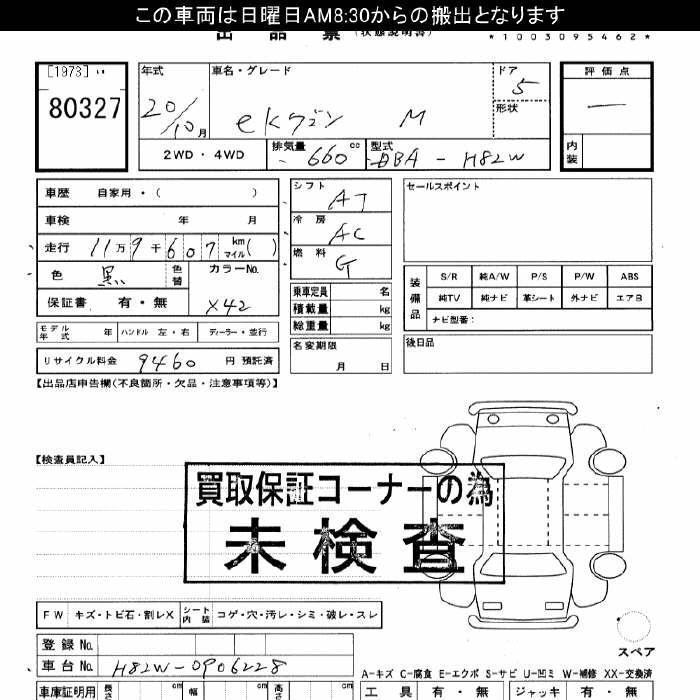 この車両は日曜日AM8:30からの搬出となります
出 品 票 (状態説明書)
*1003095462*
[1973]
80327
年式 車名・グレード ドア 評価点
20/10月 eKワゴン M 5 —
形状
2WD・4WD 排気量 660 cc 型式 DBA-H82W 内装
車歴 自家用・( )
車検 年 月
走行 11万9千607 km マイル( )
色 黒 色替 カラーNo.
保証書 有・無 X42
モデル年式 年 ハンドル 左・右 ディーラー・並行
リサイクル料金 9460 円 預託済
シフト AT
冷房 AC
燃料 G
乗車定員 名
積載量 kg
総重量 kg
名変期限
月 日
セールスポイント
装備品 S/R 純A/W P/S P/W ABS
純TV 純ナビ 革シート 外ナビ エアB
ナビ型番:
後日品
【出品店申告欄(不良箇所・欠品・注意事項等)】
【検査員記入】
買取保証コーナーの為
未検査
FW キズ・トビ石・割レX シート内装 コゲ・穴・汚レ・シミ・破レ・スレ
スペア
登録No.
車台No. H82W-0906228
A-キズ C-腐食 E-エクボ S-サビ U-凹ミ W-補修 XX-交換済
車庫証明用 長さ cm 幅 cm 高さ cm 工具 有・無 ジャッキ 有・無